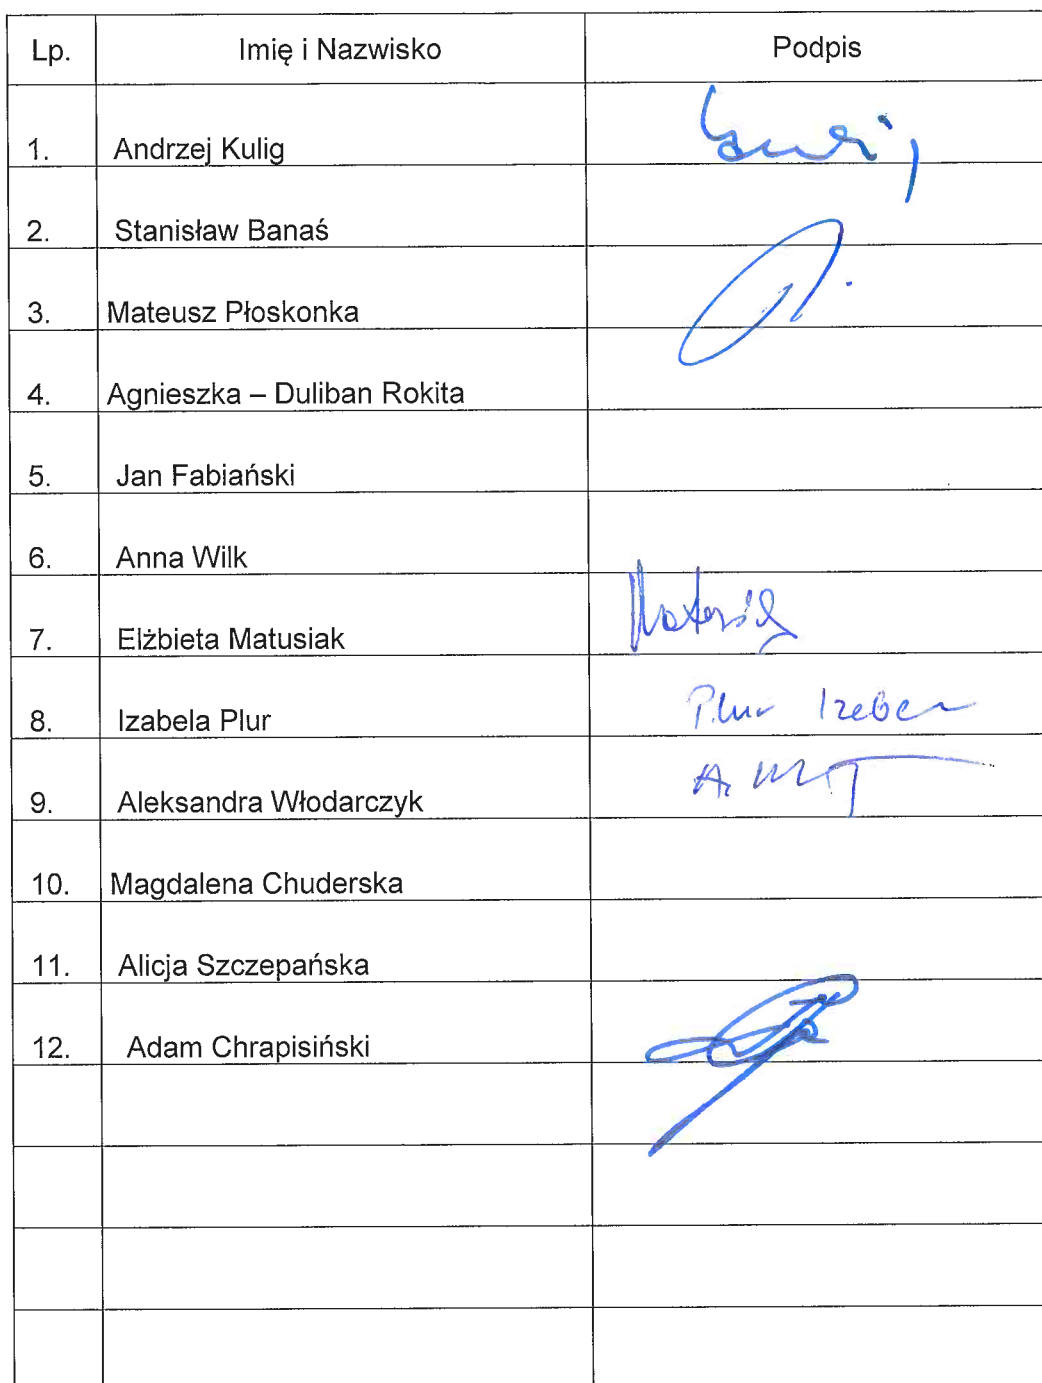 Lp. Imię i Nazwisko Podpis
1. Andrzej Kulig
2. Stanisław Banaś
3. Mateusz Płoskonka
4. Agnieszka – Duliban Rokita
5. Jan Fabiański
6. Anna Wilk
7. Elżbieta Matusiak
8. Izabela Plur Plur Izabela
9. Aleksandra Włodarczyk
10. Magdalena Chuderska
11. Alicja Szczepańska
12. Adam Chrapisiński